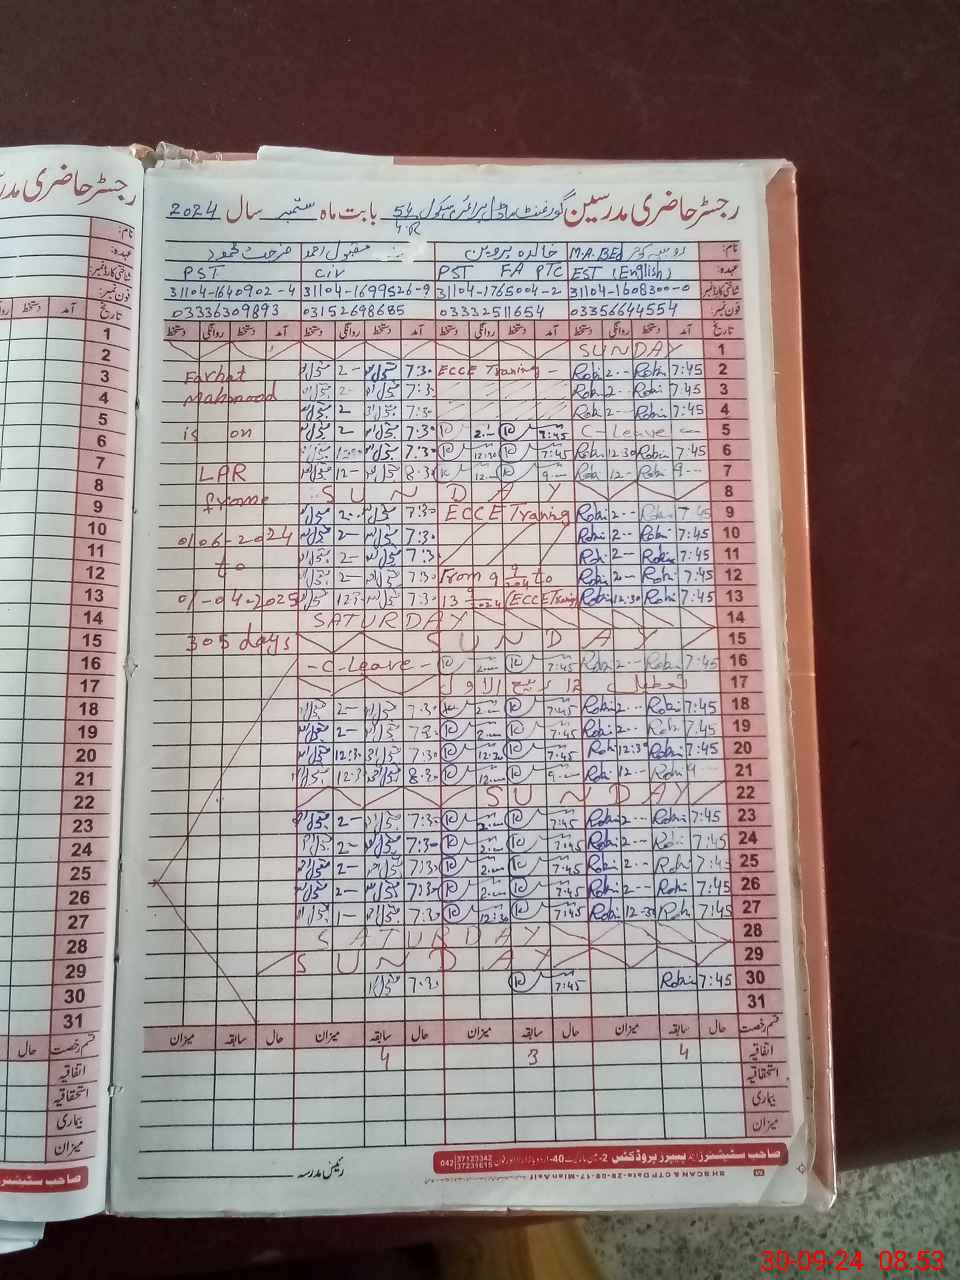 رجسٹر حاضری مدرسین گورنمنٹ ماڈل پرائمری سکول 54 بابت ماہ ستمبر سال 2024
4R
نام: M.A. BEd خالدہ پروین مقبول احمد فرحت محمود
عہدہ: EST (English) PST FA PTC Civ PST
شناختی کارڈ نمبر: 31104-1608300-0 31104-1765004-2 31104-1699526-9 31104-1640902-4
فون نمبر: 03356644554 03332511654 03152698685 03336309893
تاریخ آمد دستخط روانگی دستخط آمد دستخط روانگی دستخط آمد دستخط روانگی دستخط آمد دستخط روانگی دستخط
1 SUNDAY
2 7:45 Robi 2-- Robi ECCE Traning - 7:30 2- Farhat
3 7:45 Robi 2-- Robi 7:30 2- Mahmood
4 7:45 Robi 2-- Robi 7:30 2-
5 C-Leave 7:45 2:-- 7:30 2- is on
6 7:45 Robi 12:30 Robi 7:45 12:30 7:30
7 9-- Robi 12-- Robi 9-- 12:-- 8:30 12-- LAR
8 SUNDAY frome
9 7:45 Robi 2-- Robi ECCE Traning 7:30 2--
10 7:45 Robi 2-- Robi 7:30 2- 01-06-2024
11 7:45 Robi 2-- Robi 7:30 2- to
12 7:45 Robi 2-- Robi From 9 9/2024 to 7:30 2-
13 7:45 Robi 12:30 Robi 13 9/2024 (ECCE Traning) 7:30 12:30 01-04-2025
14 SATURDAY
15 SUNDAY 305 days
16 7:45 Robi 2-- Robi 7:45 2:-- -C-Leave-
17 تعطیل 12 ربیع الاول
18 7:45 Robi 2-- Robi 7:45 2:-- 7:30 2-
19 7:45 Robi 2-- Robi 7:45 2:-- 7:30 2-
20 7:45 Robi 12:30 Robi 7:45 12:30 7:30 12:30
21 9-- Robi 12-- Robi 9-- 12:-- 8:30 12:30
22 SUNDAY
23 7:45 Robi 2-- Robi 7:45 2:-- 7:30 2-
24 7:45 Robi 2-- Robi 7:45 2:-- 7:30 2-
25 7:45 Robi 2-- Robi 7:45 2:-- 7:30 2-
26 7:45 Robi 2-- Robi 7:45 2:-- 7:30 2-
27 7:45 Robi 12-30 Robi 7:45 12:30 7:30 1-
28 SATURDAY
29 SUNDAY
30 7:45 Robi 7:45 7:30
31
قسم رخصت حال سابقہ میزان حال سابقہ میزان حال سابقہ میزان حال سابقہ میزان
اتفاقیہ 4 3 4
استحقاقیہ
بیماری
میزان
صاحب سٹیشنرز اینڈ پیپرز پروڈکٹس 042 37123342 37231615
رئیس مدرسہ
رجسٹر حاضری مدرسین
نام:
عہدہ:
شناختی کارڈ نمبر:
فون نمبر:
تاریخ آمد دستخط روانگی
1
2
3
4
5
6
7
8
9
10
11
12
13
14
15
16
17
18
19
20
21
22
23
24
25
26
27
28
29
30
31
قسم رخصت حال
اتفاقیہ
استحقاقیہ
بیماری
میزان
صاحب سٹیشنرز
30-09-24 08.53